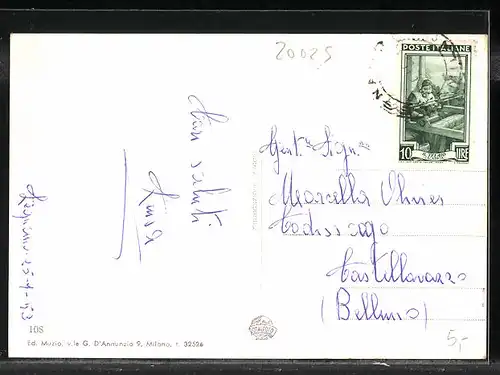 20025
POSTE ITALIANE
10 LIRE
Cari saluti
Luisa
Gent. Sign.
Marcella Olivier
Codissago
Castellavazzo
(Belluno)
108
Ed. Muzio, v.le G. D'Annunzio 9, Milano, t. 32526
5,-